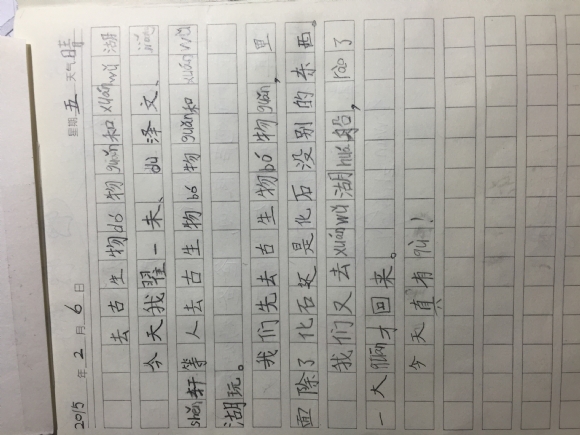 2015年2月6日 星期五 天气晴
去古生物bó物guǎn和xuánwǔ湖
今天我翟一未、du泽文、
轩等人去古生物bó物guǎn和xuánwǔ
湖玩。
我们先去古生物bó物guǎn,里
面除了化石还是化石没别的东西。
我们又去xuánwǔ湖huá船,rào了
一大quān才回来。
今天真有qù!